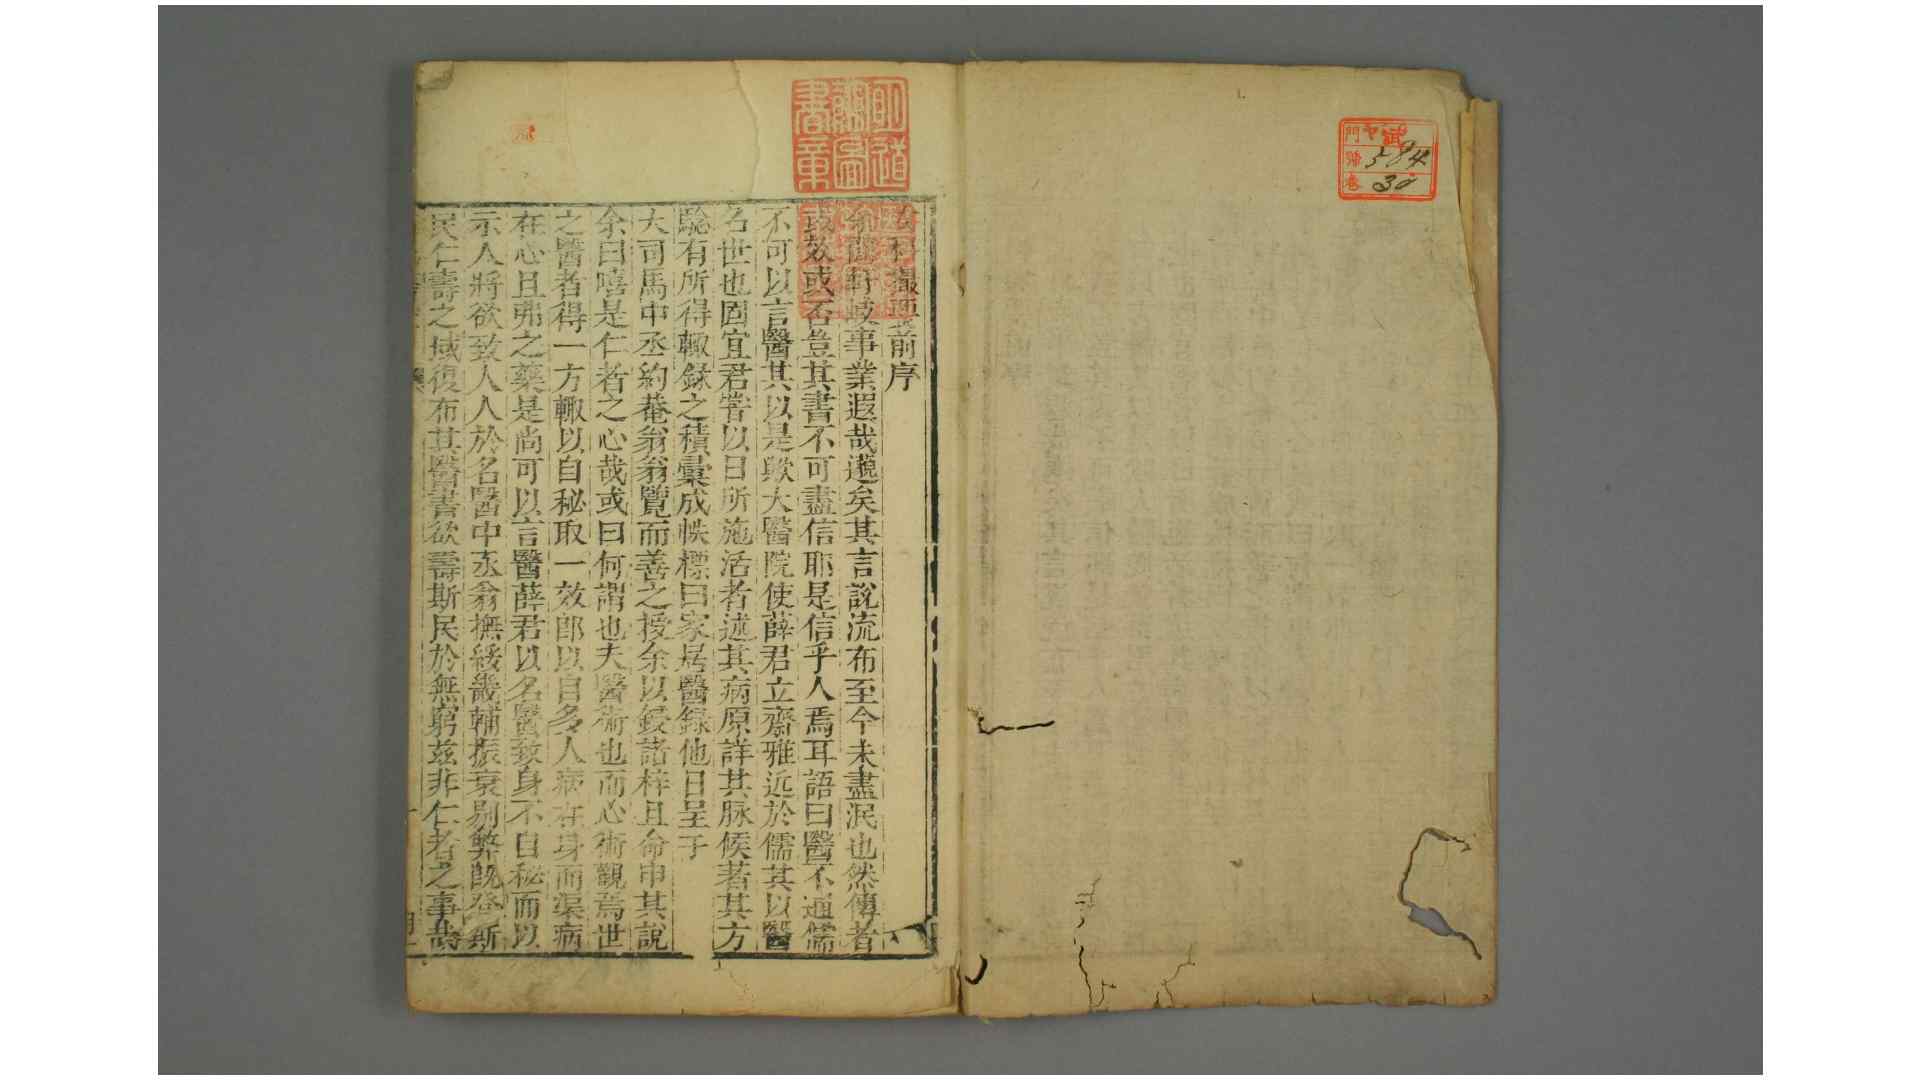 科撮要前序
軒岐事業遐哉邈矣其言說流布至今未盡泯也然傳者
或效或否豈其書不可盡信耶是信乎人焉耳語曰醫不通儒
不可以言醫其以是歟大醫院使薛君立齋雅近於儒其以醫
名世也固宜君嘗以日所施活者述其病原詳其脉候著其方
驗有所得輙錄之積彙成帙標曰家居醫錄他日呈于
大司馬中丞約菴翁翁覽而善之授余以鋟諸梓且命申其說
余曰嘻是仁者之心哉或曰何謂也夫醫術也而心術觀焉世
之醫者得一方輙以自秘取一效郎以自多人病在身而渠病
在心且弗之藥是尚可以言醫薛君以名醫致身不自秘而以
示人將欲致人人於名醫中丞翁撫綏畿輔振衰剔弊既登斯
民仁壽之域復布其醫書欲壽斯民於無窮兹非仁者之事哉
明道
圖
書章
門
號 584
卷 30